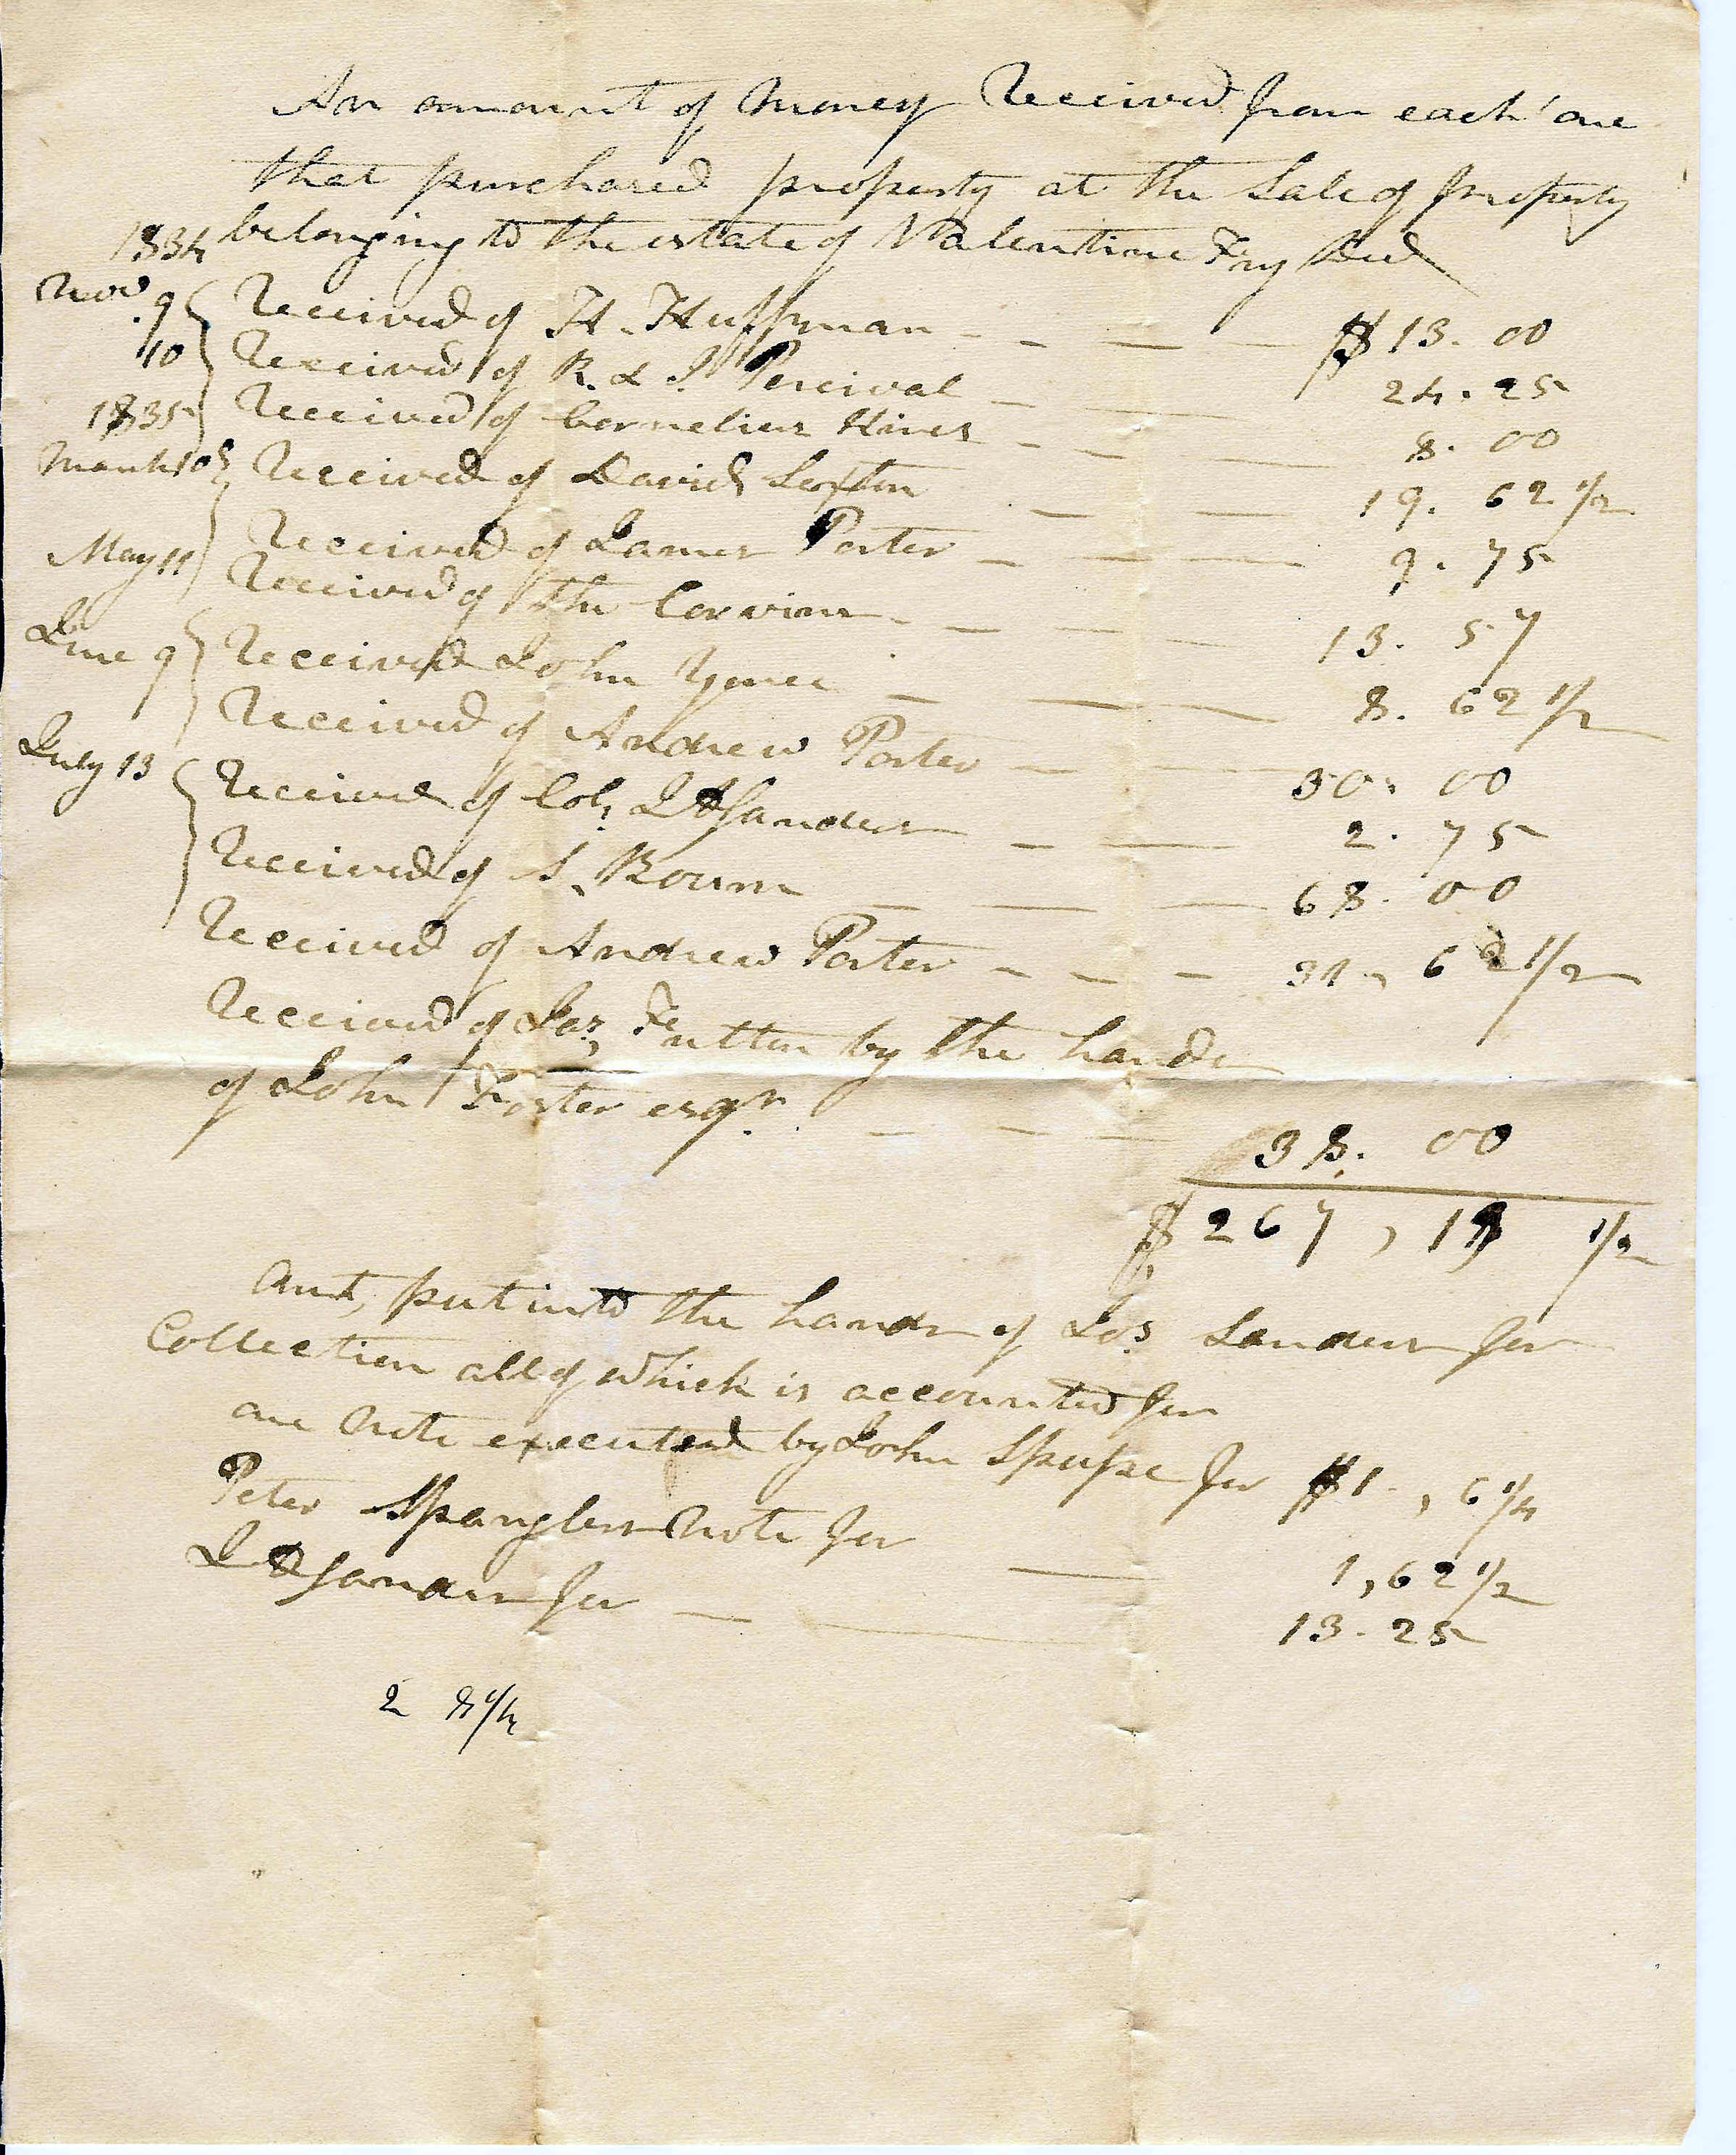 An amount of Money Received from each one
that purchased property at the Sale of property
1834 belonging to the estate of Valentine Fry Decd
Novr 9 Received of H. Huffman $13.00
10 Received of R. & J. Percival 24.25
1835 Received of Cornelius Hines 8.00
March 10th Received of David Sexton 19.62 1/2
Received of James Porter 9.75
May 11 Received of the 13.57
June 9 Received John Yonce 8.62 1/2
Received of Andrew Porter 30.00
July 13 Received of Col. J A Sanders 2.75
Received of S. Bourn 68.00
Received of Andrew Porter 31, 62 1/2
Received of Jas. Fulton by the hands
of John Foster esqr.
38.00
$267, 19 1/2
Amt, put into the hands of Jos Sanders for
Collection all of which is accounted for
one Note executed by John for $1., 6 1/4
Peter Spanglers Note for 1, 62 1/2
J A Sanders for 13.25
2 8 1/4